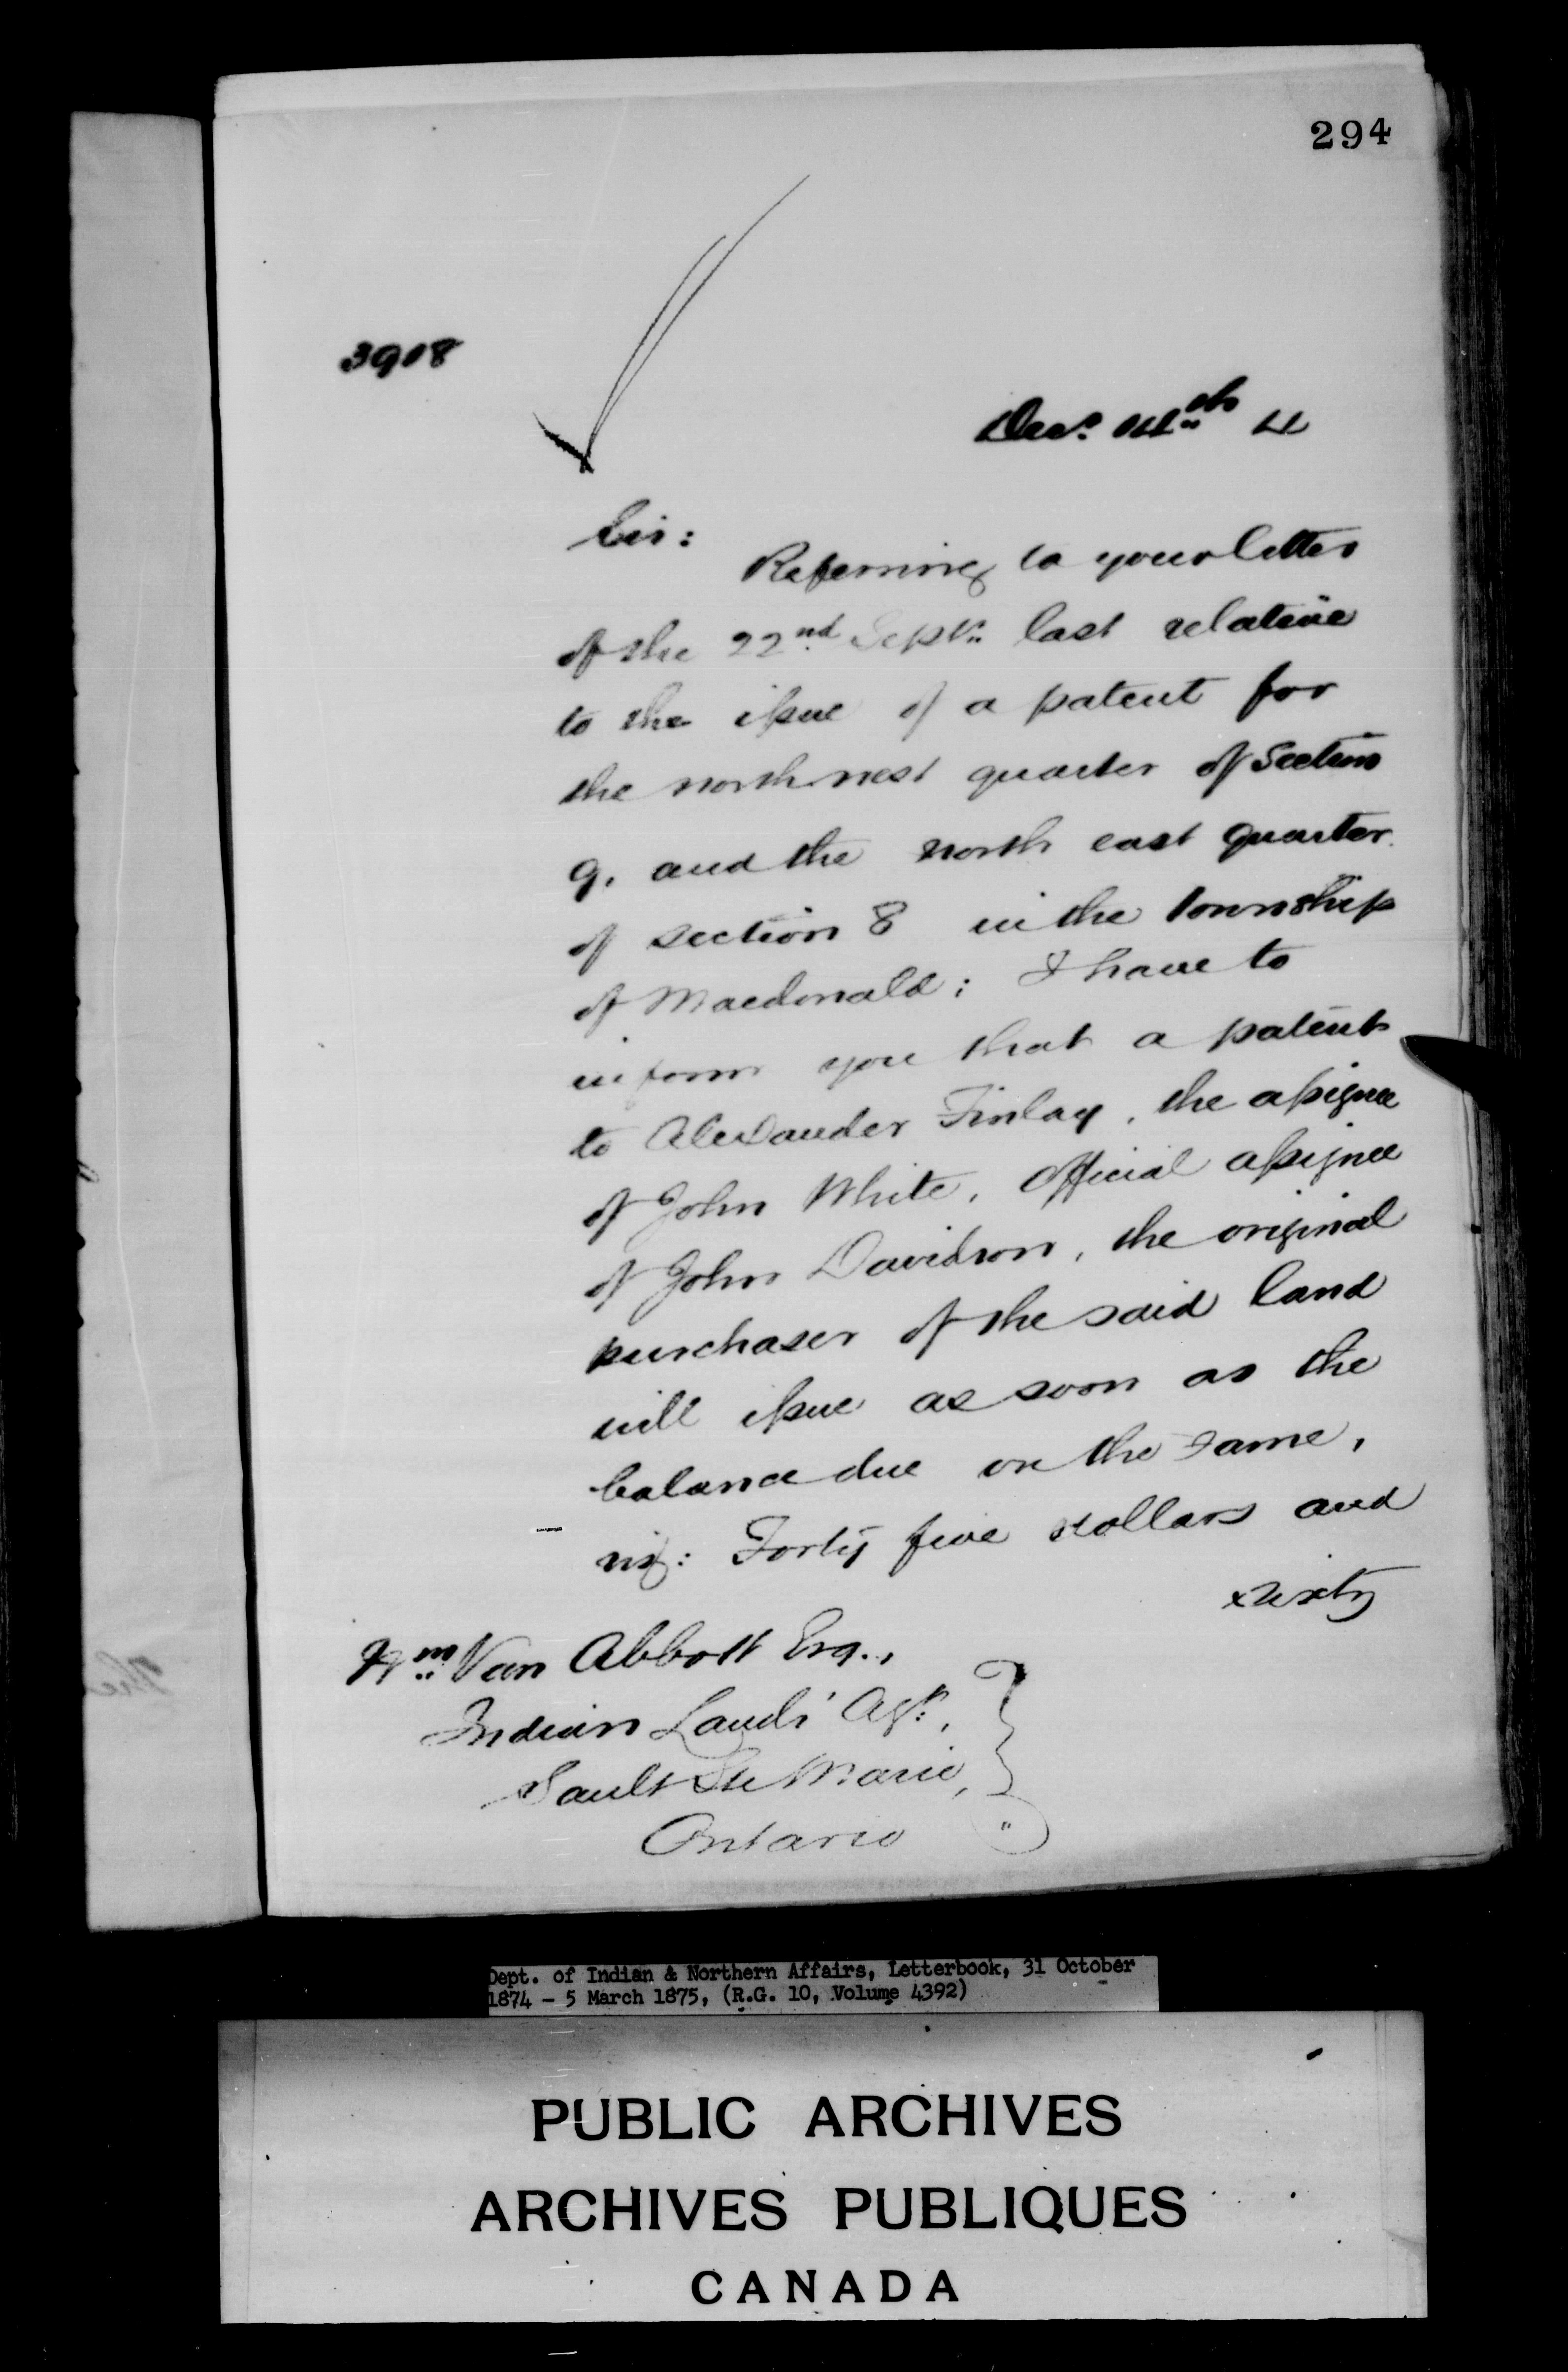 294
3908
Decr. 14th 4
Sir:
Referring to your letter
of the 22nd Septr. last relative
to the issue of a patent for
the north west quarter of Section
9. and the north east quarter
of section 8 in the township
of Macdonald; I have to
inform you that a patent
to Alexander Finlay, the assignee
of John White, Official assignee
of John Davidson, the original
purchaser of the said land
will issue as soon as the
balance due on the same,
viz: Forty five dollars and
sixty
Wm. Van Abbott Esq.,
Indian Lands' Agt.,
Sault Ste Marie,
Ontario
Dept. of Indian & Northern Affairs, Letterbook, 31 October
1874 - 5 March 1875, (R.G. 10, Volume 4392)
PUBLIC ARCHIVES
ARCHIVES PUBLIQUES
CANADA